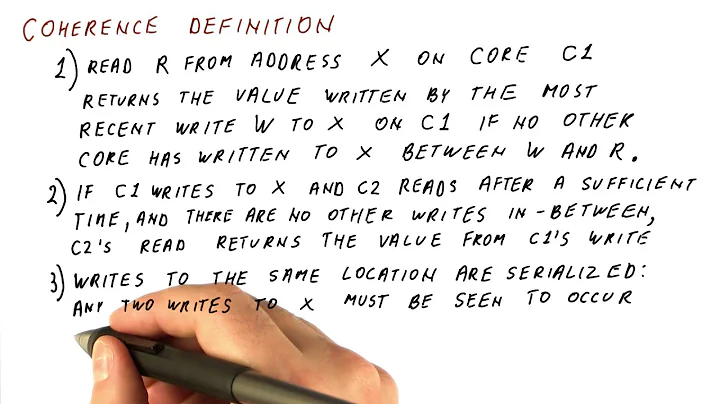 COHERENCE DEFINITION
1) READ R FROM ADDRESS X ON CORE C1
RETURNS THE VALUE WRITTEN BY THE MOST
RECENT WRITE W TO X ON C1 IF NO OTHER
CORE HAS WRITTEN TO X BETWEEN W AND R.
2) IF C1 WRITES TO X AND C2 READS AFTER A SUFFICIENT
TIME, AND THERE ARE NO OTHER WRITES IN-BETWEEN,
C2'S READ RETURNS THE VALUE FROM C1'S WRITE
3) WRITES TO THE SAME LOCATION ARE SERIALIZED:
ANY TWO WRITES TO X MUST BE SEEN TO OCCUR